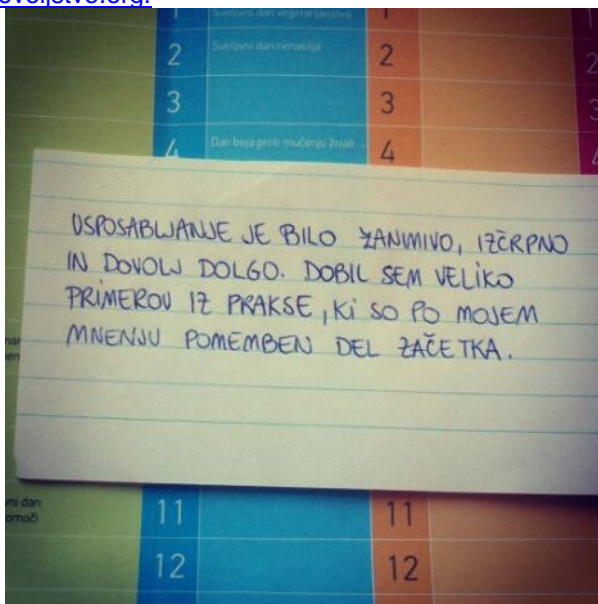 ovoljstvo.org.
1 Svetovni dan vegetarijanstva 1
2 Svetovni dan nenasilja 2
3 3
4 Dan boja proti mučenju živali 4
USPOSABLJANJE JE BILO ZANIMIVO, IZČRPNO
IN DOVOLJ DOLGO. DOBIL SEM VELIKO
PRIMEROV IZ PRAKSE, KI SO PO MOJEM
MNENJU POMEMBEN DEL ZAČETKA.
dan
omoči
11 11
12 12